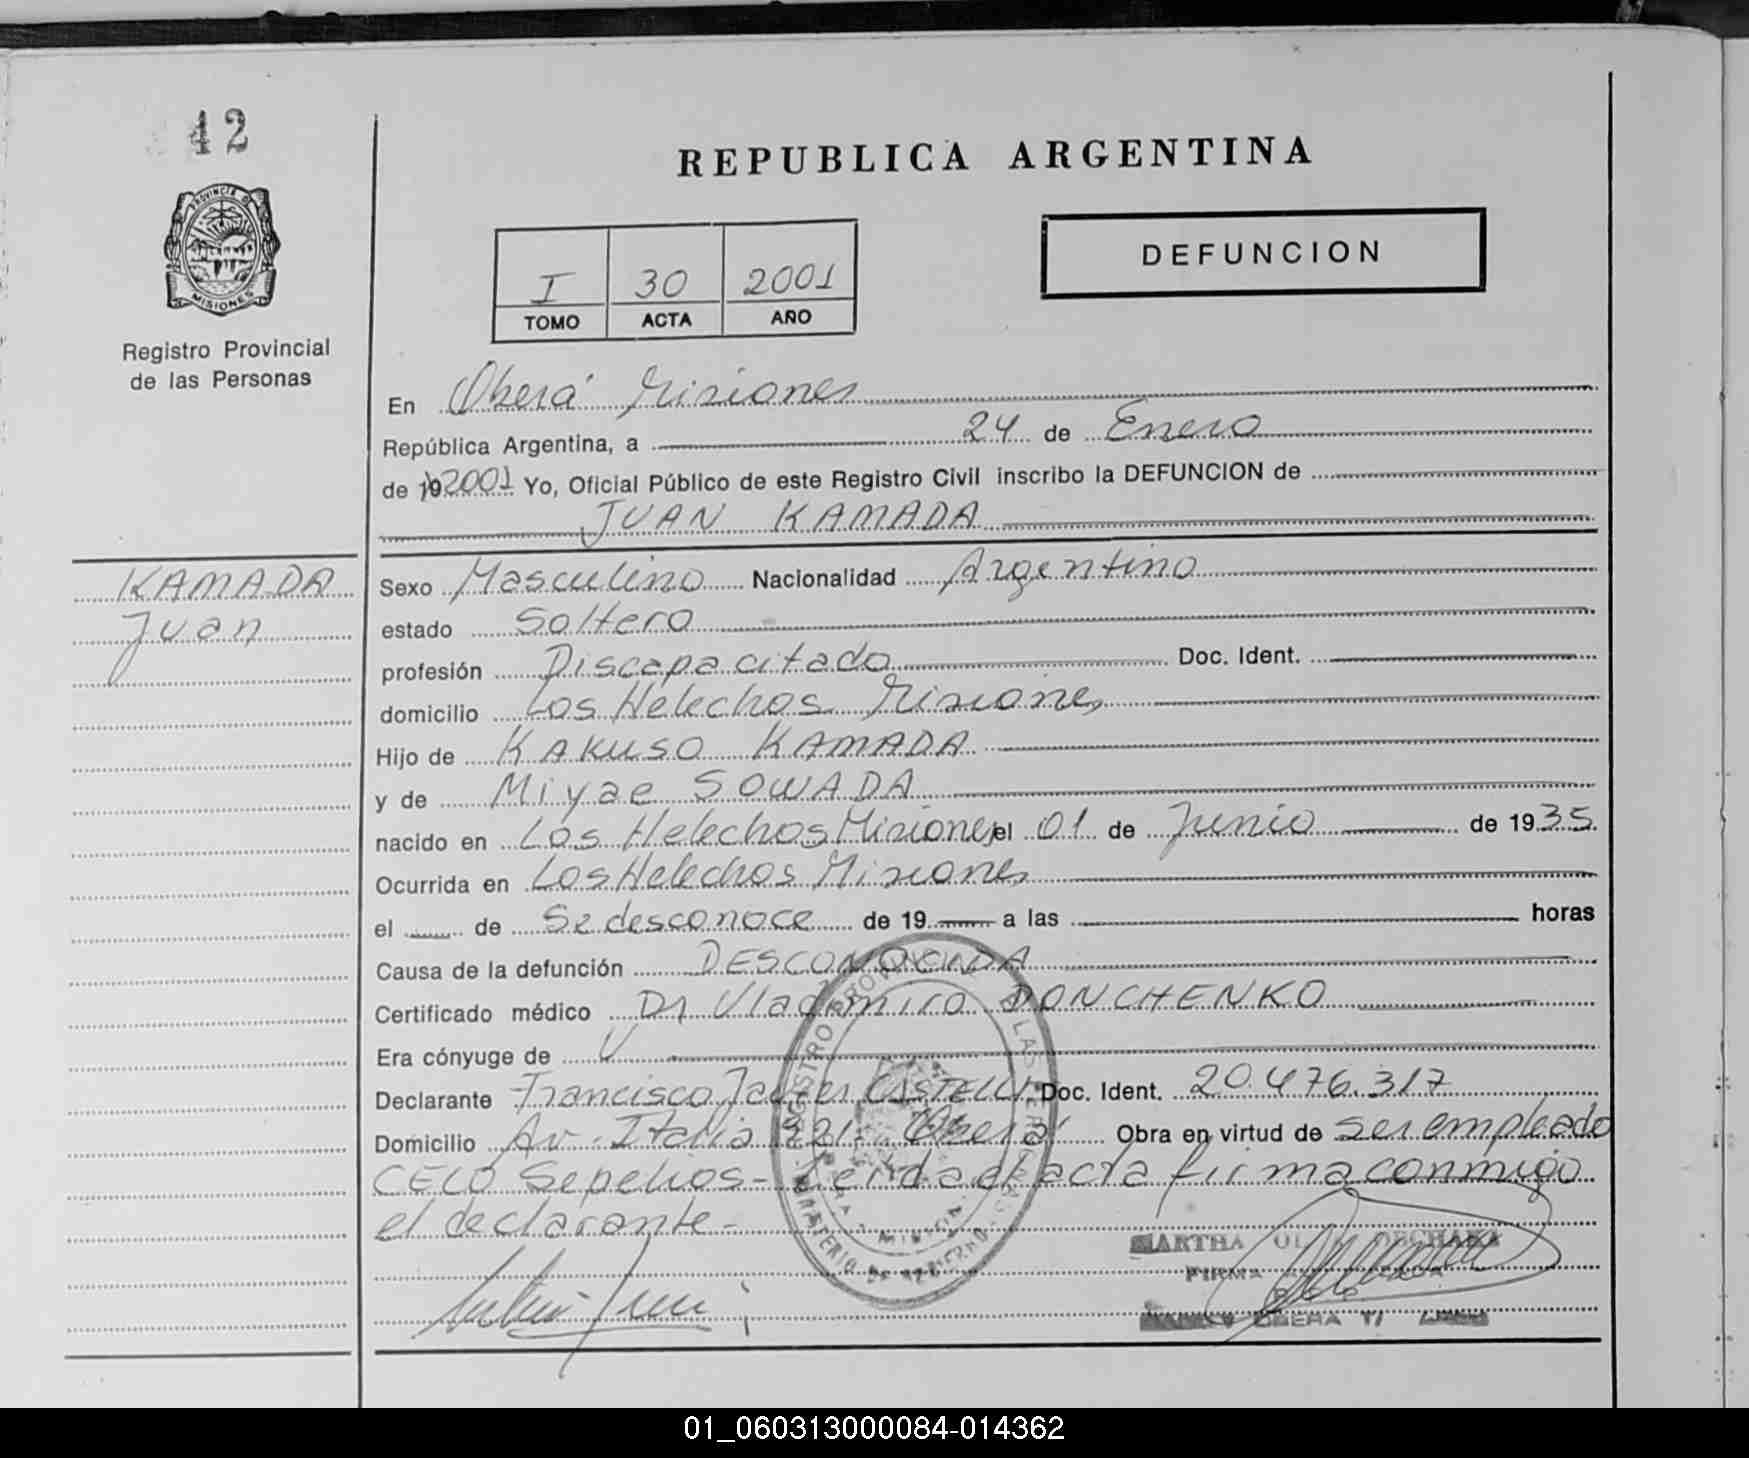 42
PROVINCIA DE
MISIONES
Registro Provincial
de las Personas
REPUBLICA ARGENTINA
I 30 2001
TOMO ACTA AÑO
DEFUNCION
En Oberá Misiones
República Argentina, a 24 de Enero
de 19 2001 Yo, Oficial Público de este Registro Civil inscribo la DEFUNCION de
JUAN KAMADA
KAMADA
Juan
Sexo Masculino Nacionalidad Argentino
estado Soltero
profesión Discapacitado Doc. Ident.
domicilio Los Helechos Misiones
Hijo de KAKUSO KAMADA
y de Miyae SOWADA
nacido en Los Helechos Misiones el 01 de Junio de 1935
Ocurrida en Los Helechos Misiones
el de Se desconoce de 19 a las horas
Causa de la defunción DESCONOCIDA
Certificado médico Dr Vladimiro DONCHENKO
Era cónyuge de
Declarante Francisco Javier CASTELLI Doc. Ident. 20.476.317
Domicilio Av. Italia 221- Oberá Obra en virtud de ser empleado
CELO Sepelios- Leída el acta firma conmigo
el declarante-
REGISTRO PROVINCIAL DE LAS PERSONAS
MINISTERIO DE GOBIERNO
MARTHA
FIRMA
OBERA
01_060313000084-014362